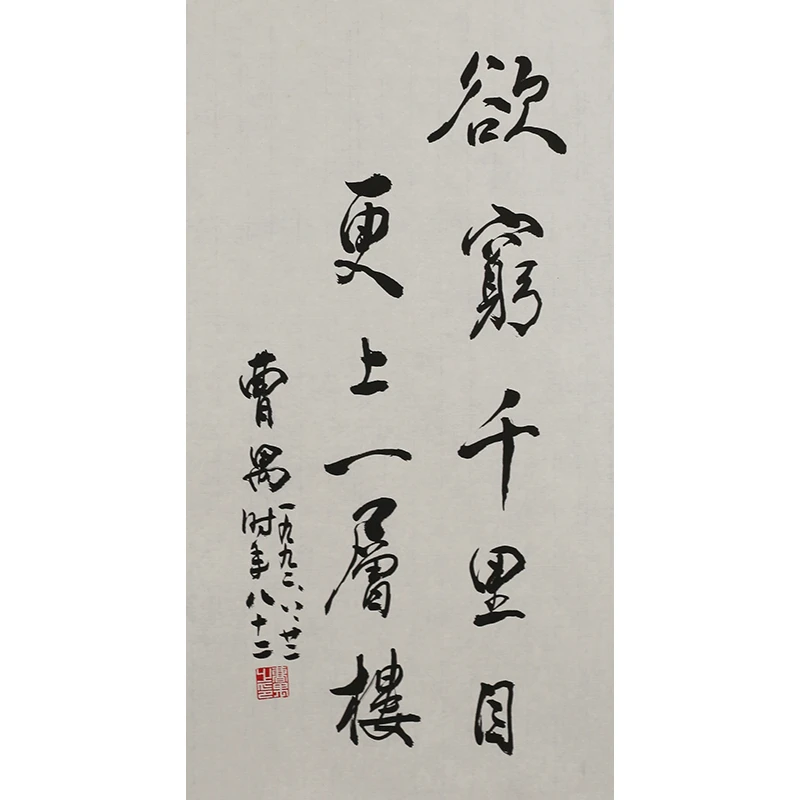 欲窮千里目
更上一層樓
曹禺
一九九二、八、廿二
时年八十二